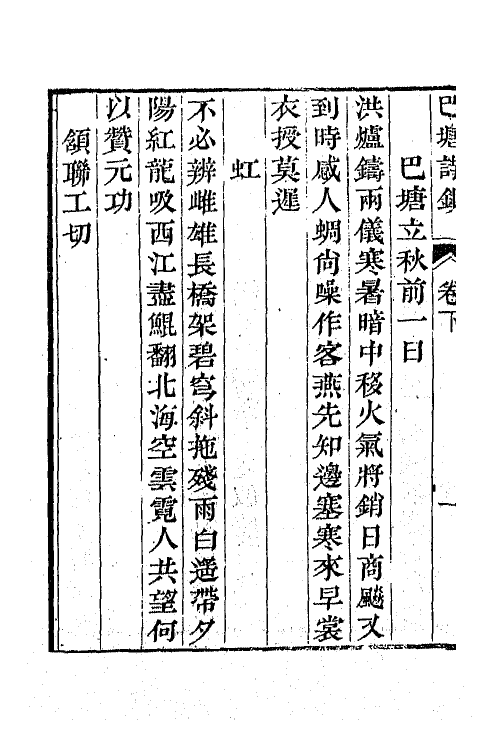 巴塘詩鈔 卷下 一
巴塘立秋前一日
洪爐鑄兩儀寒暑暗中移火氣將銷日商飈又
到時感人蜩尙噪作客燕先知邊塞寒來早裳
衣授莫遲
虹
不必辨雌雄長橋架碧穹斜拖殘雨白遥帶夕
陽紅龍吸西江盡鯤翻北海空雲霓人共望何
以贊元功
頷聯工切